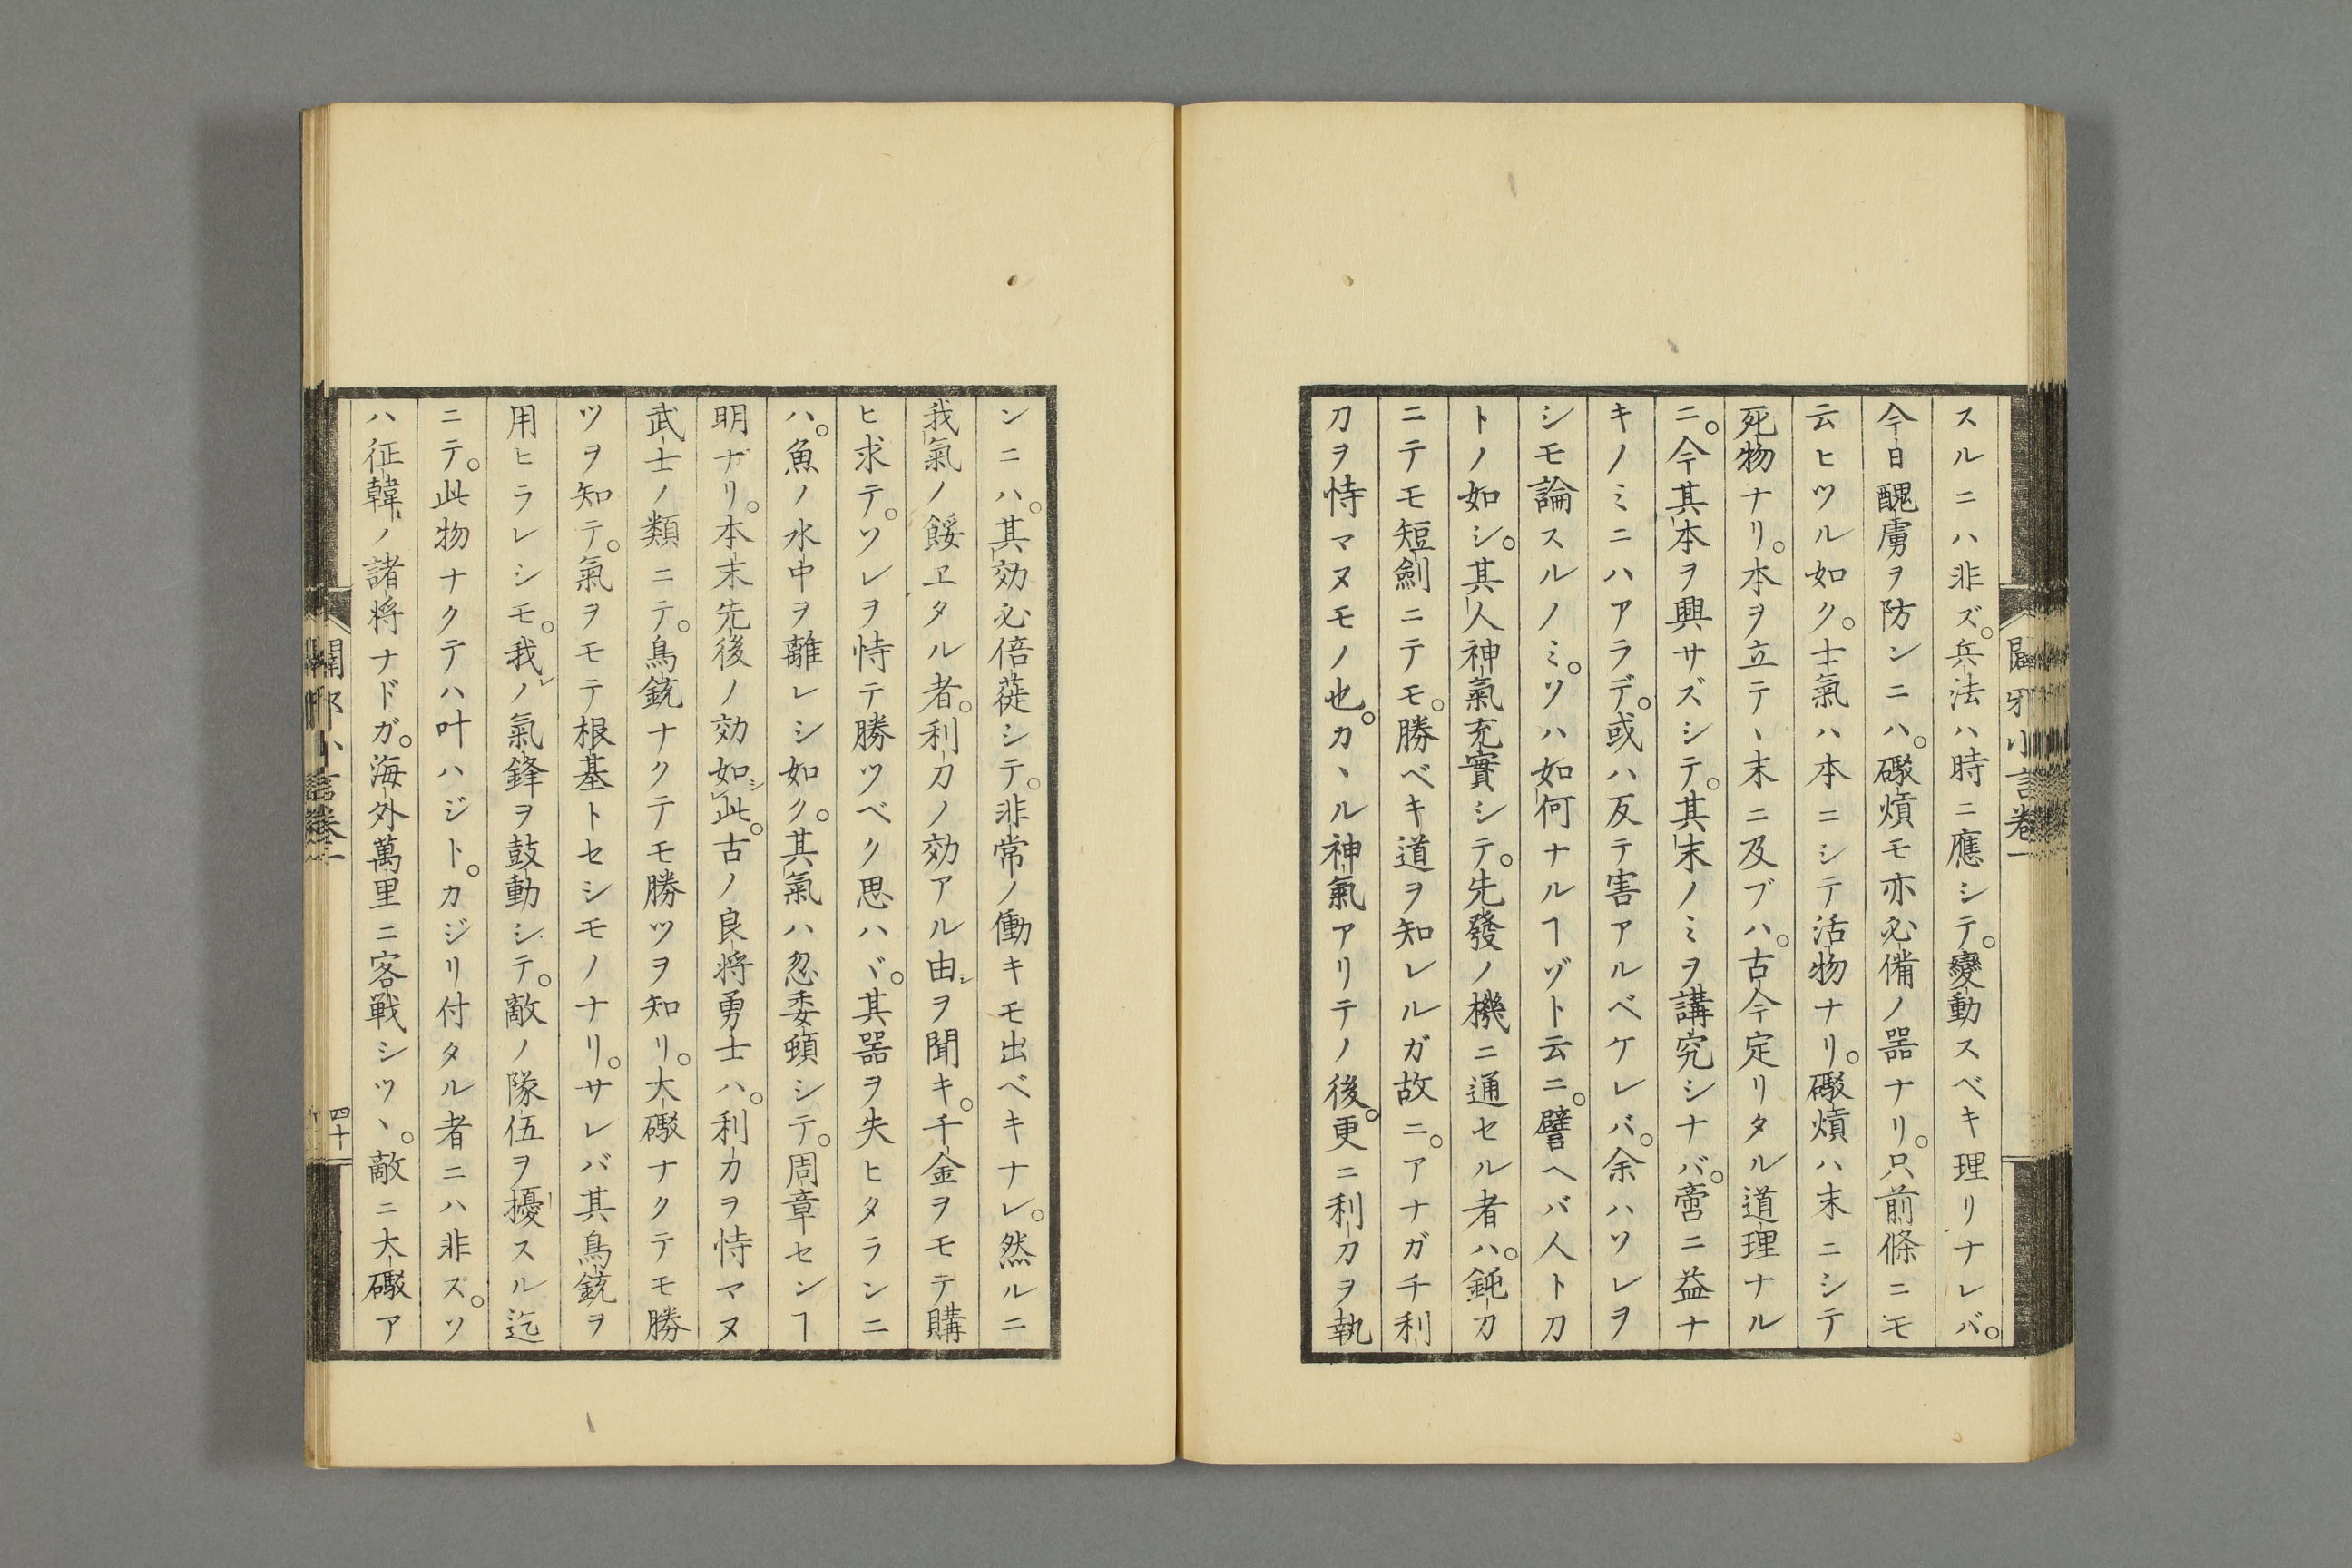 スルニハ非ズ。兵法ハ時ニ應シテ。變動スベキ理リナレバ。
今日醜虜ヲ防ンニハ。礟熕モ亦必備ノ器ナリ。只前條ニモ
云ヒツル如ク。士氣ハ本ニシテ活物ナリ。礟熕ハ末ニシテ
死物ナリ。本ヲ立テヽ末ニ及ブハ。古今定リタル道理ナル
ニ。今其本ヲ興サズシテ。其末ノミヲ講究シナバ。啻ニ益ナ
キノミニハアラデ。或ハ反テ害アルベケレバ。余ハソレヲ
シモ論スルノミ。ソハ如何ナルヿゾト云ニ。譬ヘバ人ト刀
トノ如シ。其人神氣充實シテ。先發ノ機ニ通セル者ハ。鈍刀
ニテモ短劍ニテモ。勝ベキ道ヲ知レルガ故ニ。アナガチ利
刀ヲ恃マヌモノ也。カヽル神氣アリテノ後。更ニ利刀ヲ執
闢邪小言卷一
ンニハ。其効必倍蓰シテ。非常ノ働キモ出ベキナレ。然ルニ
我氣ノ餒ヱタル者。利刀ノ効アル由ヲ聞キ。千金ヲモテ購
ヒ求テ。ソレヲ恃テ勝ツベク思ハヾ。其器ヲ失ヒタランニ
ハ。魚ノ水中ヲ離レシ如ク。其氣ハ忽委頓シテ。周章センヿ
明ナリ。本末先後ノ効如シ此。古ノ良將勇士ハ。利刀ヲ恃マヌ
武士ノ類ニテ。鳥銃ナクテモ勝ツヲ知リ。大礟ナクテモ勝
ツヲ知テ。氣ヲモテ根基トセシモノナリ。サレバ其鳥銃ヲ
用ヒラレシモ。我レノ氣鋒ヲ鼓動シテ。敵ノ隊伍ヲ擾スル迄
ニテ。此物ナクテハ叶ハジト。カジリ付タル者ニハ非ズ。ソ
ハ征韓ノ諸將ナドガ。海外萬里ニ客戦シツヽ。敵ニ大礟ア
闢邪小言卷一
四十